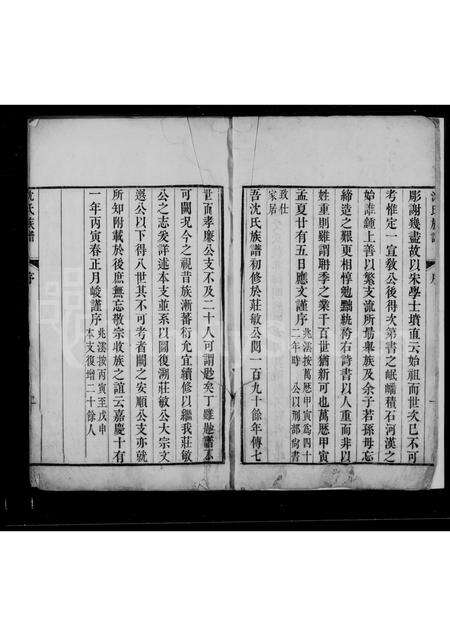 沈氏族譜 序
彫謝幾盡故以宋學士墳直云始祖而世次已不可
考惟定一宣敎公後得次第書之岷嶓積石河漢之
始誰鍾上善以繁支流所勗舉族及余子若孫毋忘
締造之艱更相惇勉飄軌苪右詩書以人重而非以
姓重則雖謂聃季之業千百世猶新可也萬歷甲寅
孟夏廿有五日應文謹序 兆澐按萬歷甲寅爲四十二年時 公以刑部尙書
致仕家居
吾沈氏族譜初修於莊敏公閱一百九十餘年傳七
世而孝廉公支不及二十人可謂
可闕況今之視昔族漸蕃衍允宜續修以繼我莊敏
公之志爰詳述本支並系以圖復溯莊敏公大宗文
選公以下得八世其不可考者闕之安順公支亦就
所知附載於後庶無忘敬宗收族之誼云嘉慶十有
一年丙寅春正月峻謹序 兆澐按丙寅至戊申本支復增二十餘人
沈氏族譜 序